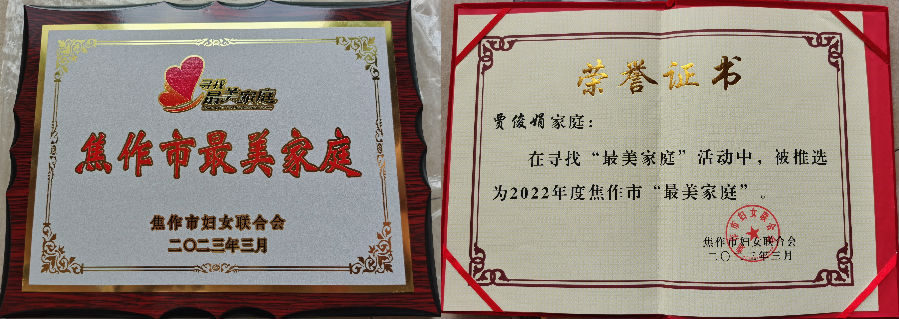 寻找
最美家庭
焦作市最美家庭
焦作市妇女联合会
二〇二三年三月
荣誉证书
贾俊娟家庭：
在寻找“最美家庭”活动中，被推选
为2022年度焦作市“最美家庭”。
焦作市妇女联合会
焦作市妇女联合会
二〇二三年三月